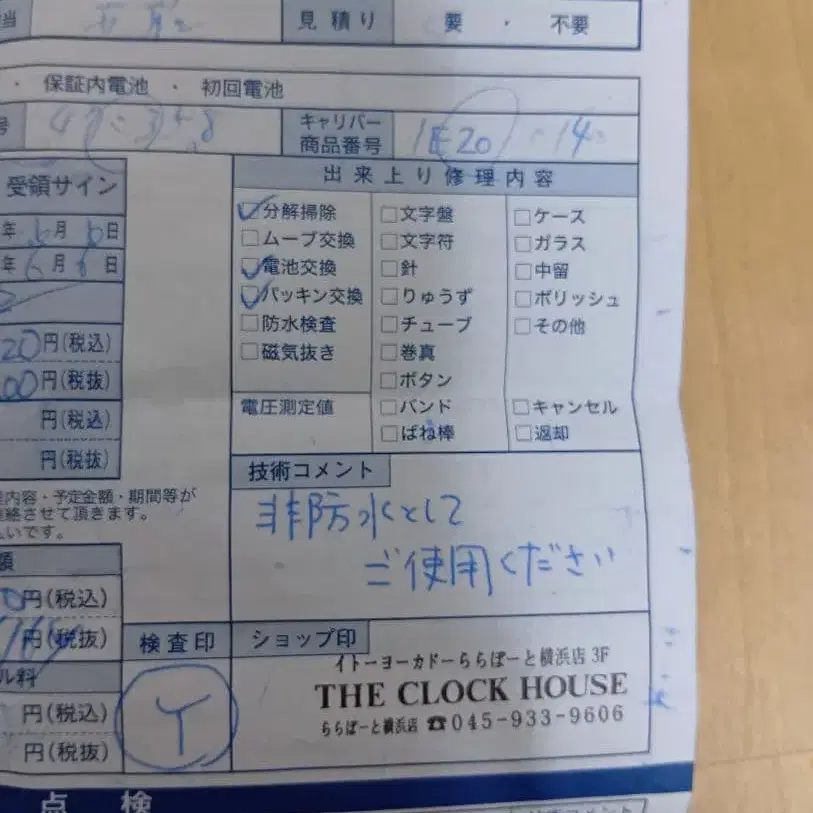 当
見積り 要 ・ 不要
・ 保証内電池 ・ 初回電池
号
キャリバー
商品番号 1E20
受領サイン
年6月6日
年6月6日
20円(税込)
00円(税抜)
円(税込)
円(税抜)
出来上り修理内容
✓分解掃除 □文字盤 □ケース
□ムーブ交換 □文字符 □ガラス
✓電池交換 □針 □中留
✓パッキン交換 □りゅうず □ポリッシュ
□防水検査 □チューブ □その他
□磁気抜き □巻真
□ボタン
電圧測定値 □バンド □キャンセル
□ばね棒 □返却
内容・予定金額・期間等が
絡させて頂きます。
いです。
技術コメント
非防水として
ご使用ください
額
0円(税込)
円(税抜)
ル料
円(税込)
円(税抜)
検査印
Y
ショップ印
イトーヨーカドーららぽーと横浜店 3F
THE CLOCK HOUSE
ららぽーと横浜店 ☎045-933-9606
点 検